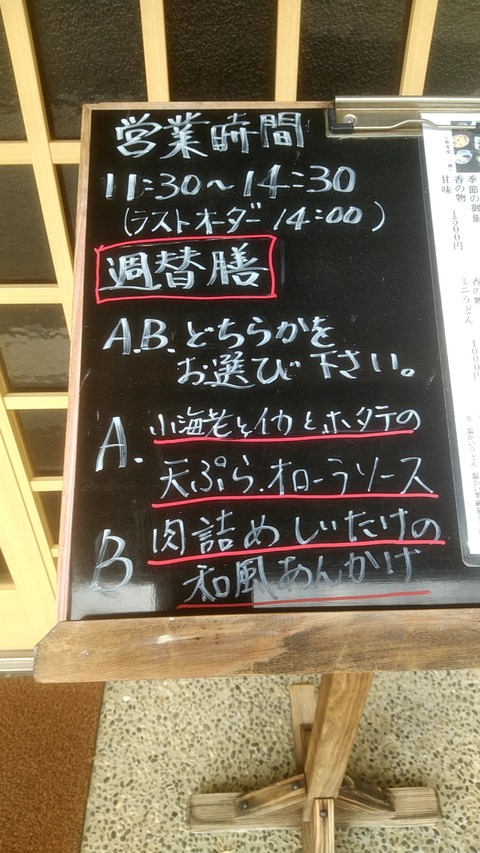 営業時間
11:30~14:30
(ラストオーダー 14:00)
週替膳
A.B.どちらかを
お選び下さい。
A. 小海老とイカとホタテの
天ぷら.オーローラソース
B 肉詰めしいたけの
和風あんかけ
季節の御飯
香の物
甘味
1500円
香の物
ミニうどん